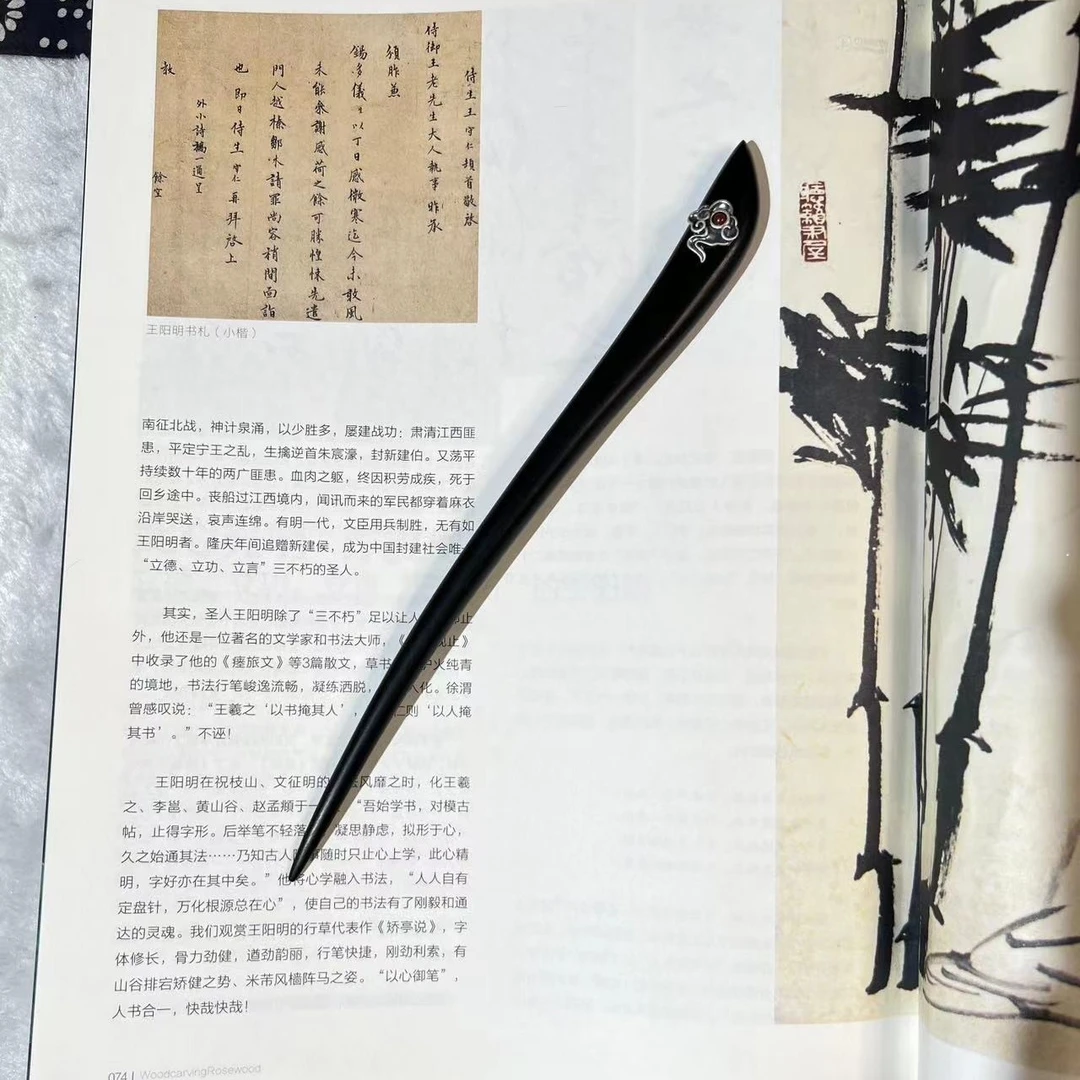 侍生王守仁頓首敬啓
侍御王老先生大人執事昨承
頒胙兼
錫多儀生以丁日感微寒迄今未敢風
未能參謝感荷之餘可勝惶悚先遣
門人越榛鄒木請罪尚容稍間面詣
也即日侍生守仁再拜啓上
外小詩稿一道呈
教
餘空
王阳明书札（小楷）
南征北战，神计泉涌，以少胜多，屡建战功：肃清江西匪
患，平定宁王之乱，生擒逆首朱宸濠，封新建伯。又荡平
持续数十年的两广匪患。血肉之躯，终因积劳成疾，死于
回乡途中。丧船过江西境内，闻讯而来的军民都穿着麻衣
沿岸哭送，哀声连绵。有明一代，文臣用兵制胜，无有如
王阳明者。隆庆年间追赠新建侯，成为中国封建社会唯一
“立德、立功、立言”三不朽的圣人。
其实，圣人王阳明除了“三不朽”足以让人 止
外，他还是一位著名的文学家和书法大师，《 观止》
中收录了他的《瘗旅文》等3篇散文，草书 炉火纯青
的境地，书法行笔峻逸流畅，凝练洒脱， 入化。徐渭
曾感叹说：“王羲之‘以书掩其人’， 仁则‘以人掩
其书’。”不诬！
王阳明在祝枝山、文征明的 法风靡之时，化王羲
之、李邕、黄山谷、赵孟頫于一 “吾始学书，对模古
帖，止得字形。后举笔不轻落 凝思静虑，拟形于心，
久之始通其法……乃知古人 随时只止心上学，此心精
明，字好亦在其中矣。”他将心学融入书法，“人人自有
定盘针，万化根源总在心”，使自己的书法有了刚毅和通
达的灵魂。我们观赏王阳明的行草代表作《矫亭说》，字
体修长，骨力劲健，遒劲韵丽，行笔快捷，刚劲利索，有
山谷排宕矫健之势、米芾风樯阵马之姿。“以心御笔”，
人书合一，快哉快哉！
074 | WoodcarvingRosewood